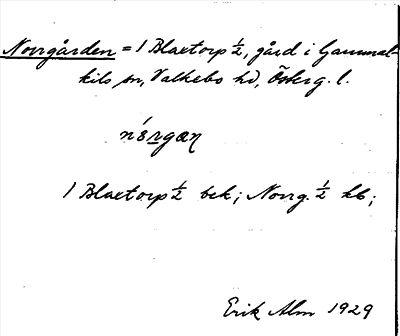 Norrgården = 1 Blaxtorp ½, gård i Gammal-
kils sn, Valkebo hd, Österg. l.
nórgæɳ
1 Blaxtorp ½ bek; Norrg. ½ kb;
Erik Alm 1929